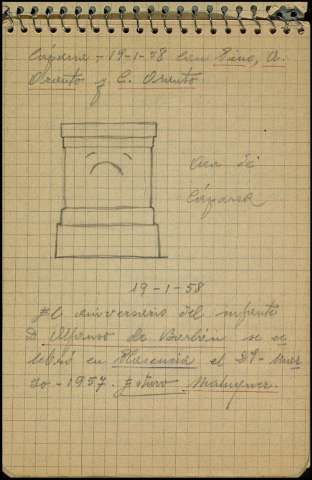 Cáparra - 19-1-58 con Sino, A.
Oriento y C. Oriento
Ara de
Cáparra
19-1-58
El aniversario del infante
D. Alfonso de Borbón se ce
lebró en Plasencia el 29-Mar
zo-1957. Estuvo Maluquer.